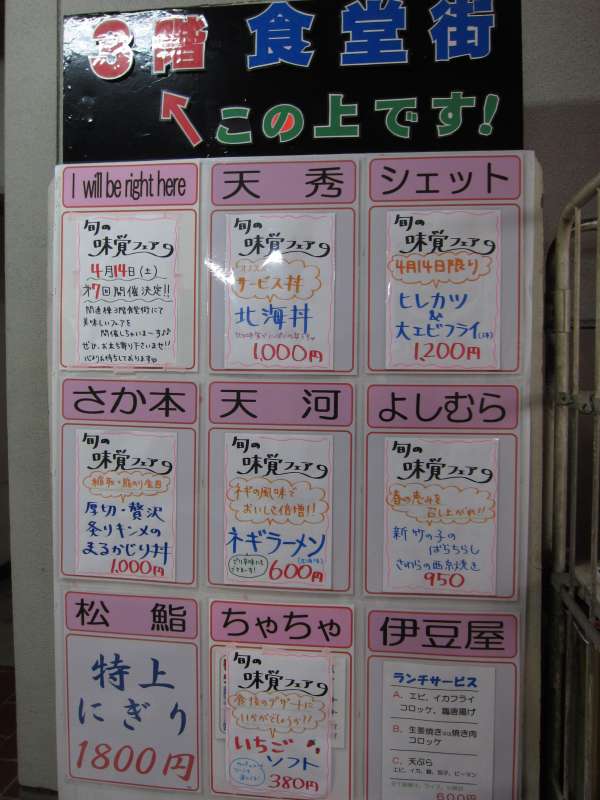 3階 食堂街
この上です!
I will be right here
旬の
味覚フェア
4月14日(土)
第7回開催決定!!
関連棟3階食堂街にて
美味しいフェアを
開催しちゃいまーす♪
ぜひ、お立ち寄り下さいませ!!
心よりお待ちしております
天秀
旬の
味覚フェア
サービス丼
北海丼
1,000円
シェット
旬の
味覚フェア
4月14日限り
ヒレカツ
&
大エビフライ
1,200円
さか本
旬の
味覚フェア
厚切・贅沢
炙りキンメの
まるかじり丼
1,000円
天河
旬の
味覚フェア
ネギの風味で
おいしさ倍増!!
ネギラーメン
600円
よしむら
旬の
味覚フェア
春の恵みを
召し上がれ!!
新竹の子の
ばらちらし
さわらの西京焼き
950
松鮨
特上
にぎり
1800円
ちゃちゃ
旬の
味覚フェア
食後のデザートに
いかがでしょうか!!
いちご
ソフト
380円
伊豆屋
ランチサービス
A、エビ、イカフライ
コロッケ、鶏唐揚げ
B、生姜焼き又は焼き肉
コロッケ
C、天ぷら
エビ、イカ、鱚、茄子、ピーマン
600円